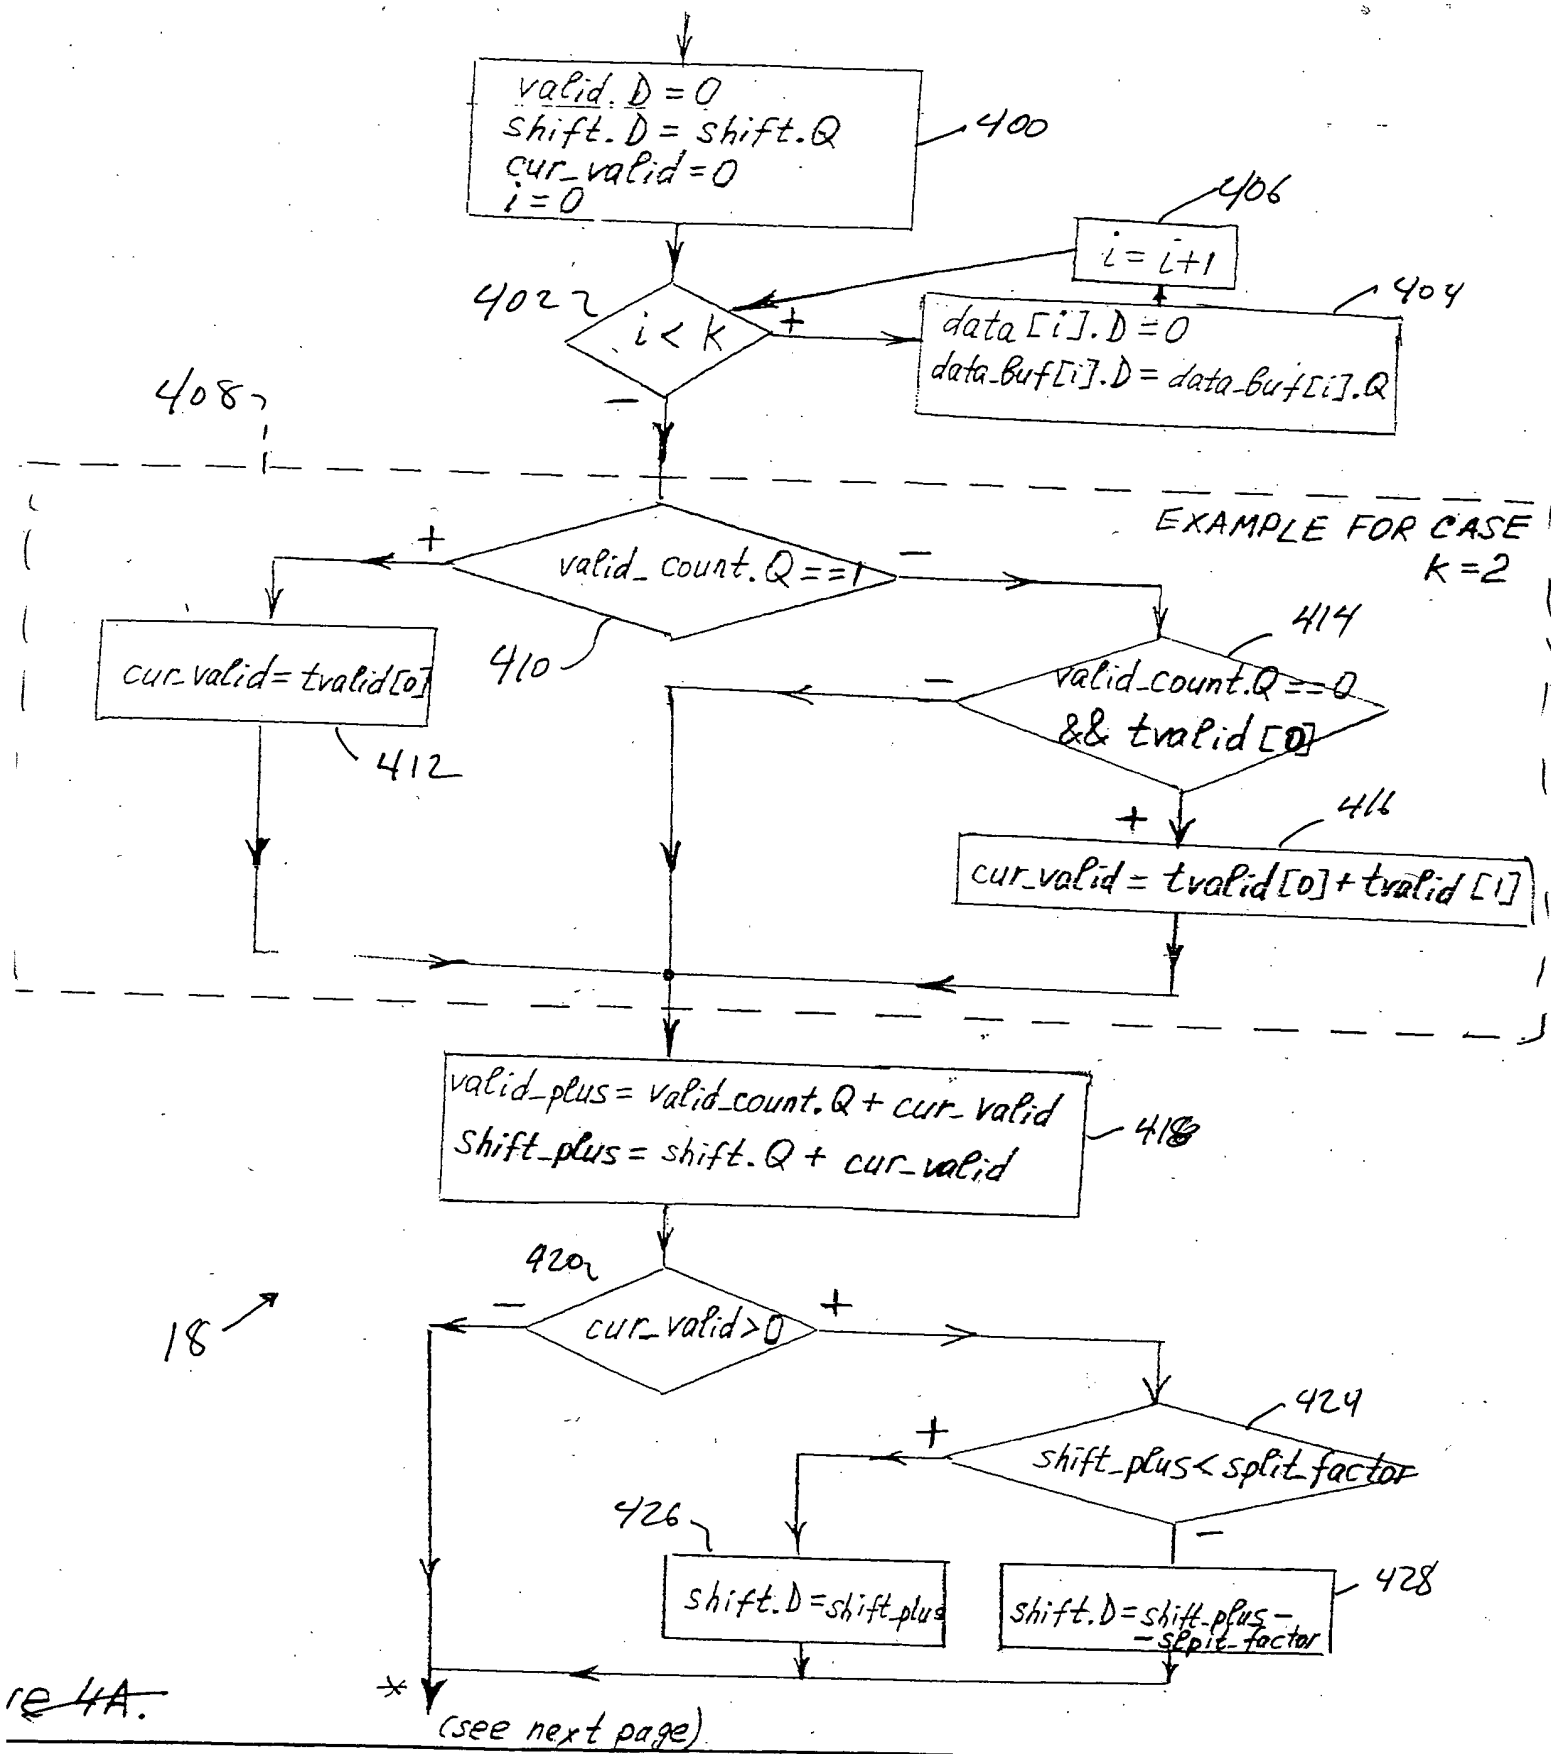 valid.D = 0
shift.D = shift.Q
cur_valid = 0
i = 0
400
406
i = i+1
402
i < k
+
404
data[i].D = 0
data_buf[i].D = data_buf[i].Q
-
408
EXAMPLE FOR CASE
K = 2
+
valid_count.Q == 1
-
410
414
cur_valid = tvalid[0]
412
-
valid_count.Q == 0
&& tvalid [0]
+
416
cur_valid = tvalid [0] + tvalid [1]
valid_plus = valid_count.Q + cur_valid
shift_plus = shift.Q + cur_valid
418
420
-
cur_valid > 0
+
18
424
+
shift_plus < split_factor
-
426
shift.D = shift_plus
428
shift.D = shift_plus -
- slpit_factor
re 4A.
*
(see next page)